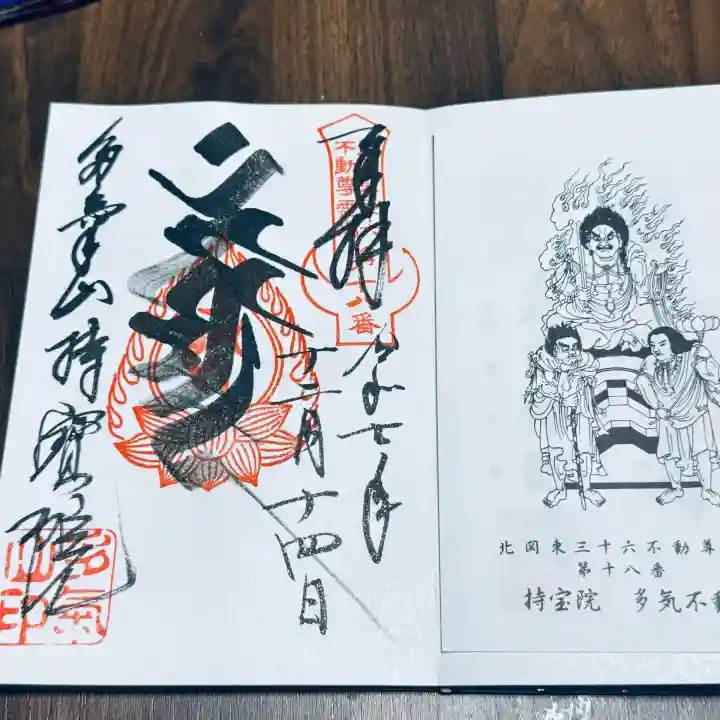 奉拝
令和七年
十二月十四日
多氣山持寳院
不動尊霊
十八番
北関東三十六不動尊
第十八番
持宝院 多気不動